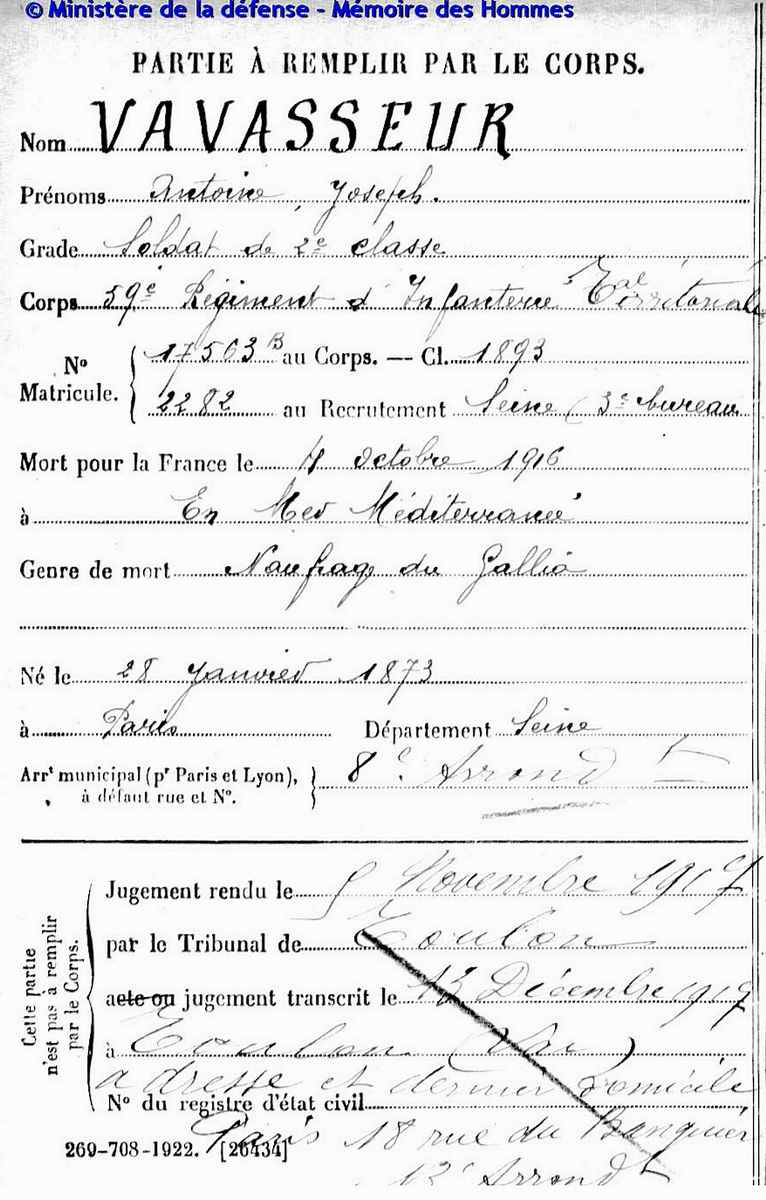 © Ministère de la défense - Mémoire des Hommes
PARTIE À REMPLIR PAR LE CORPS.
Nom VAVASSEUR
Prénoms Antoine, Joseph.
Grade Soldat de 2e classe
Corps 59e Régiment d'Infanterie Territoriale
No Matricule. 17563 B au Corps. — Cl. 1893
2282 au Recrutement Seine (3e bureau
Mort pour la France le 4 octobre 1916
à En Mer Méditerranée
Genre de mort Naufrage du Gallia
Né le 28 Janvier 1873
à Paris Département Seine
Arrt municipal (pr Paris et Lyon), 8e Arrondt
à défaut rue et No.
Cette partie
n'est pas à remplir
par le Corps.
Jugement rendu le 5 Novembre 1917
par le Tribunal de Toulon
acte ou jugement transcrit le 13 Décembre 1917
à Toulon (Var)
adresse et dernier domicile
No du registre d'état civil
Paris 18 rue du Banquier
269-708-1922. [26434]
13e Arrondt